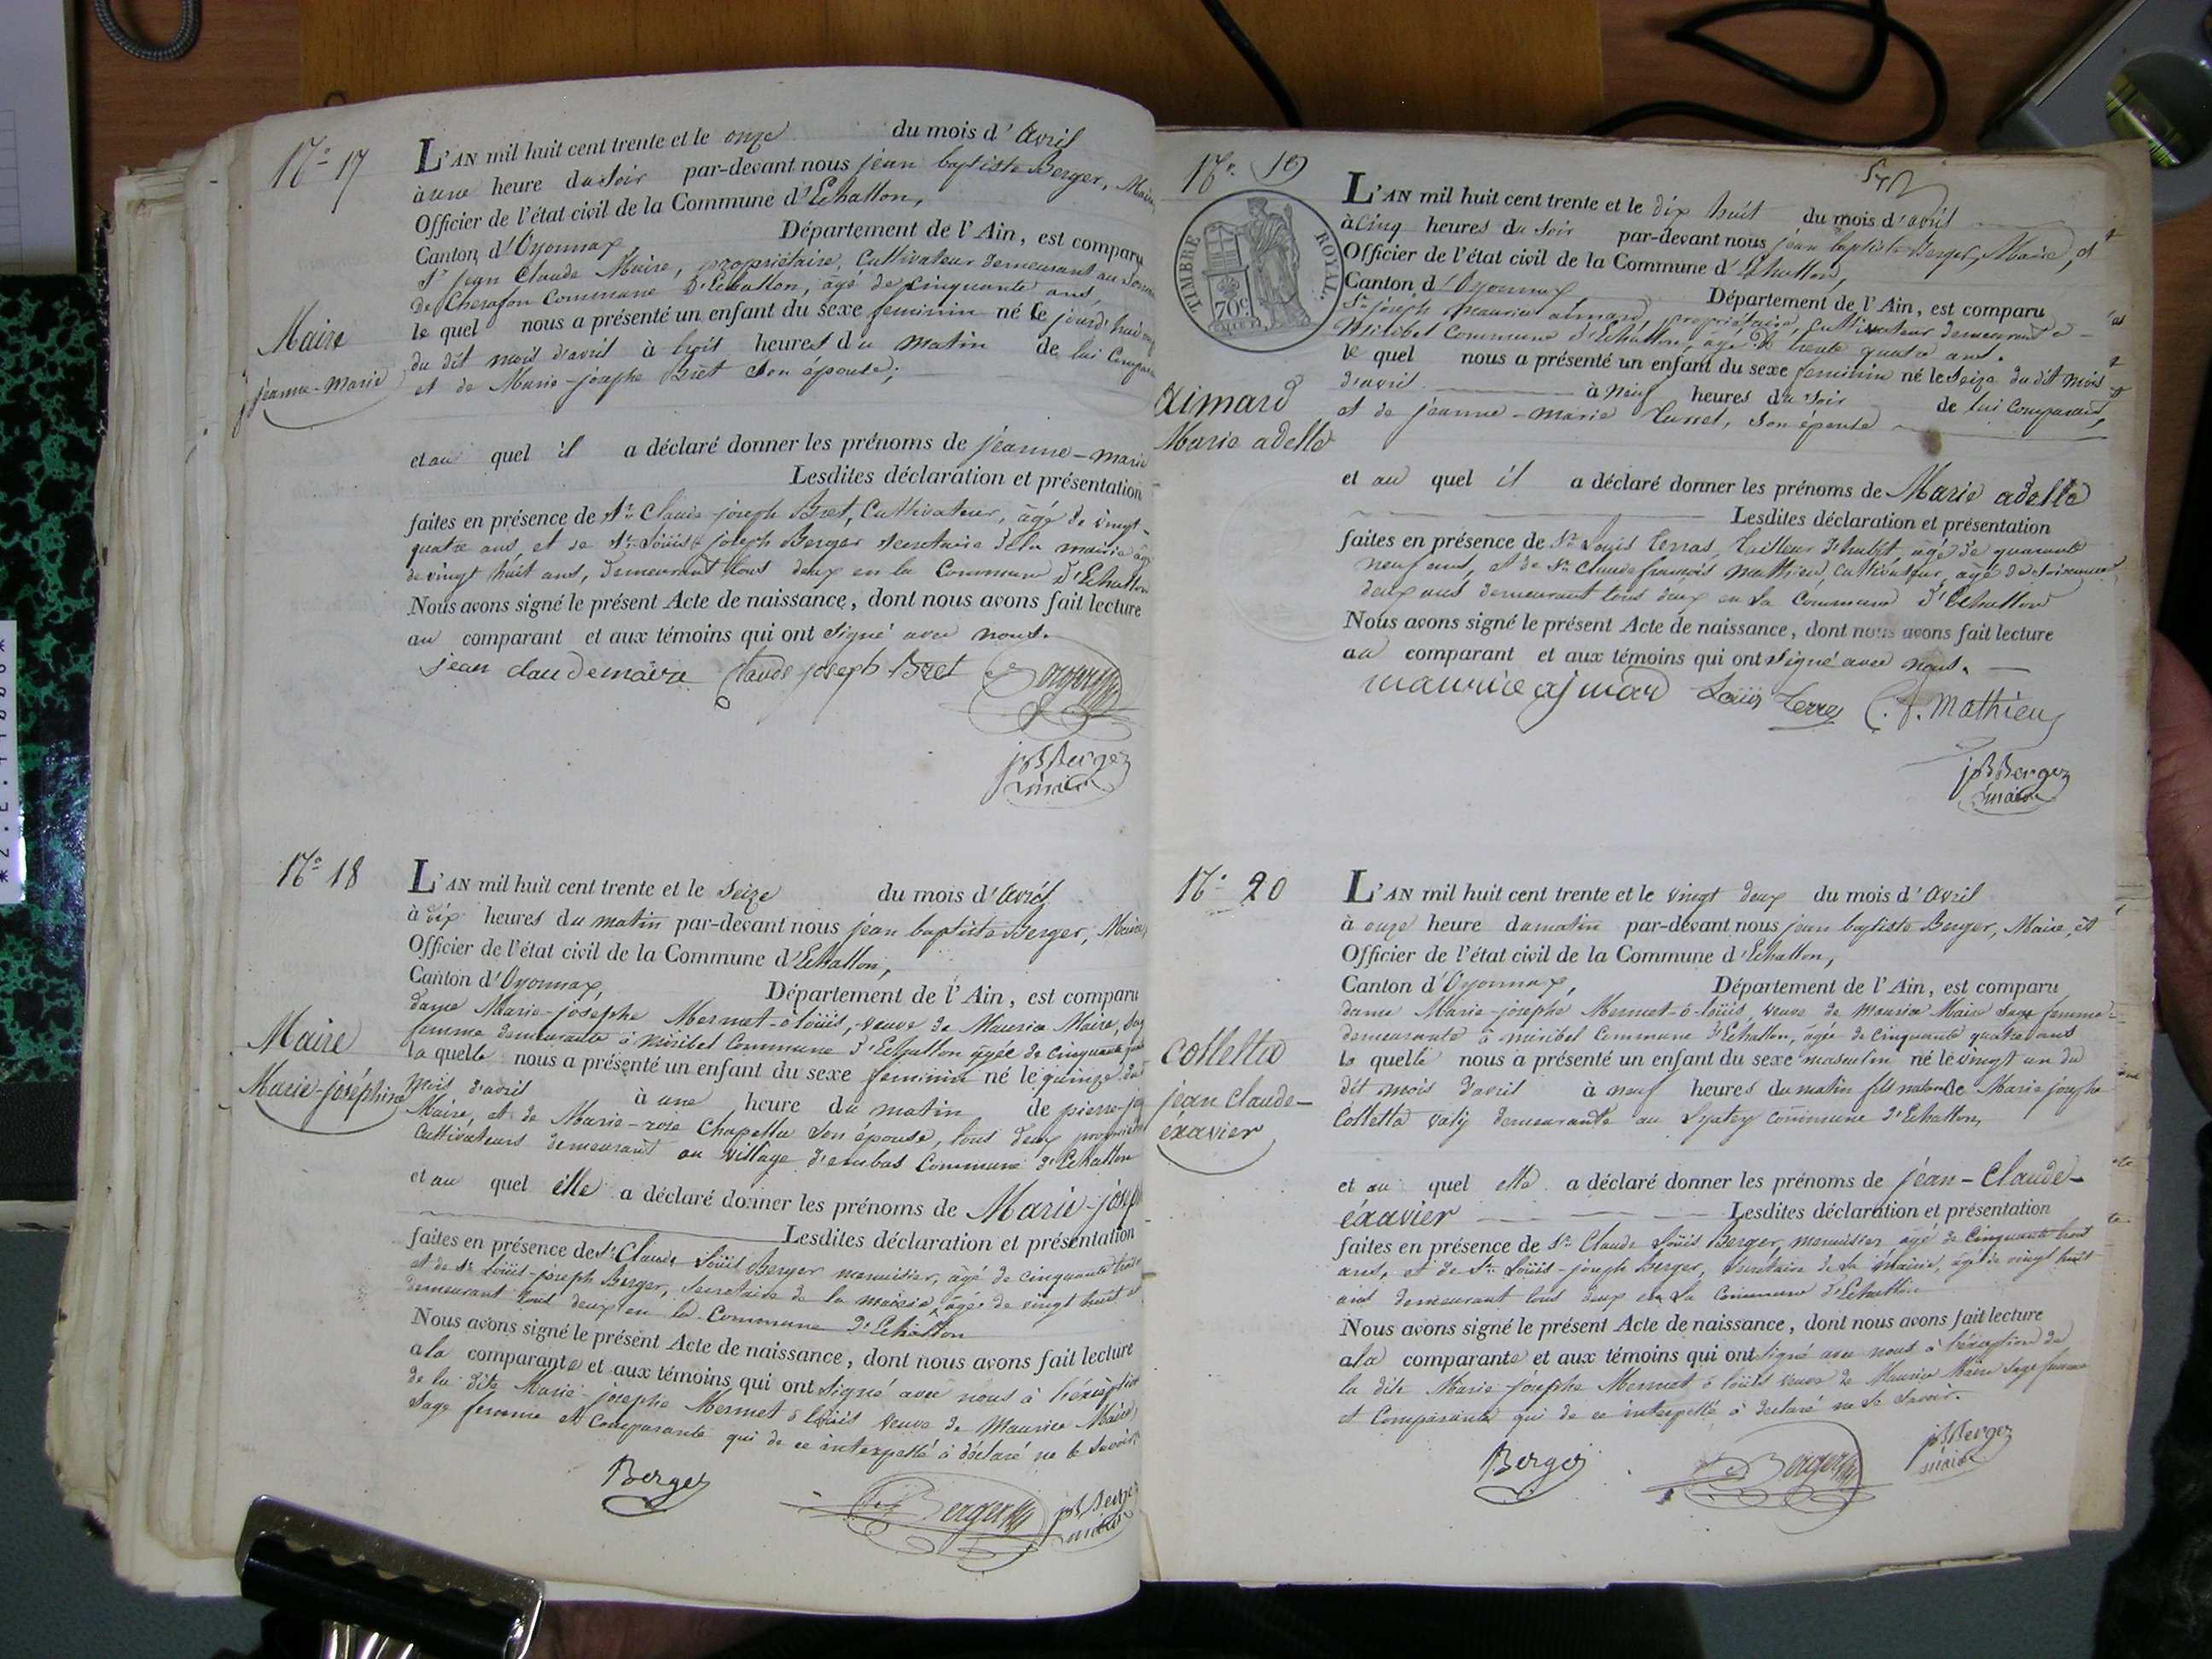 N° 17
L'AN mil huit cent trente et le onze du mois d'Avril
à une heure du soir par-devant nous jean baptiste Berger, Maire
Officier de l'état civil de la Commune d'Echallon,
Canton d'Oyonnax, Département de l'Ain, est comparu
Sr jean Claude Maire, propriétaire, Cultivateur demeurant au
De Commune D'Echallon, âgé de cinquante ans,
le quel nous a présenté un enfant du sexe feminin né le jourd'hui
du dit mois d'avril à huit heures du matin de lui Comparant
et de Marie-josephe Bret son épouse;
Maire
jeanne-marie
et au quel il a déclaré donner les prénoms de jeanne-marie
Lesdites déclaration et présentation
faites en présence de Sr Claude joseph Bret, Cultivateur, âgé de vingt-
quatre ans, et de Sr Loüis joseph Berger secretaire de la mairie âgé
de vingt huit ans, demeurant tous deux en la Commune D'Echallon
Nous avons signé le présent Acte de naissance, dont nous avons fait lecture
au comparant et aux témoins qui ont signé avec nous.
jean claude maire Claude joseph Bret Berger
jB Berger
maire
N° 18
L'AN mil huit cent trente et le Seize du mois d'Avril
à dix heures du matin par-devant nous jean baptiste Berger, Maire,
Officier de l'état civil de la Commune d'Echallon,
Canton d'Oyonnax, Département de l'Ain, est comparu
dame Marie-joséphe Mermet-ô-loüis, veuve de Maurice Maire, sage
femme demeurante à miribel Commune D'Echallon âgée de cinquante
la quelle nous a présenté un enfant du sexe feminin né le quinze du
mois d'avril à une heure du matin de pierre
Maire, et de Marie-rose Chapelle son épouse, tous deux
cultivateurs demeurant au village d'embas Commune d'Echallon
Maire
Marie-joséphine
et au quel elle a déclaré donner les prénoms de Marie-
Lesdites déclaration et présentation
faites en présence de Sr Claude Loüis Berger menuisier, âgé de cinquante trois
et de Sr Loüis-joseph Berger, secretaire de la mairie, âgé de vingt huit
demeurant tous deux en la Commune D'Echallon
Nous avons signé le présent Acte de naissance, dont nous avons fait lecture
a la comparante et aux témoins qui ont signé avec nous à l'exception
de la dite Marie-josephe Mermet ô loüis veuve de Maurice Maire
sage femme et Comparante qui de ce interpellé à déclaré ne le savoir.
Berger Berger jB Berger
maire
N° 19
TIMBRE ROYAL.
70 c.
L'AN mil huit cent trente et le dix huit du mois d'avril
à cinq heures du soir par-devant nous jean baptiste Berger, Maire, et
Officier de l'état civil de la Commune d'Echallon,
Canton d'Oyonnax, Département de l'Ain, est comparu
Sr joseph Maurice aimard, propriétaire, cultivateur demeurant à
Miribel Commune D'Echallon, âgé de trente quatre ans.
le quel nous a présenté un enfant du sexe feminin né le Seize du dit mois
d'avril à neuf heures du soir de lui Comparant,
et de jeanne-marie son épouse
Aimard
Marie adelle
et au quel il a déclaré donner les prénoms de Marie adelle
Lesdites déclaration et présentation
faites en présence de Sr Louis Terras, tailleur d'habit, âgé de quarante
neuf ans, et de Sr Claude françois Mathieu, cultivateur, âgé de
deux ans demeurant tous deux en la Commune D'Echallon
Nous avons signé le présent Acte de naissance, dont nous avons fait lecture
au comparant et aux témoins qui ont signé avec nous.
maurice aymard Loüis C. F. Mathieu
jB Berger
maire
N° 20
L'AN mil huit cent trente et le vingt deux du mois d'Avril
à onze heure du matin par-devant nous jean baptiste Berger, Maire, et
Officier de l'état civil de la Commune d'Echallon,
Canton d'Oyonnax, Département de l'Ain, est comparu
dame Marie-josephe Mermet-ô-loüis, veuve de maurice Maire sage femme
demeurante à miribel Commune D'Echallon, âgée de cinquante quatre ans
la quelle nous a présenté un enfant du sexe masculin né le vingt un du
dit mois d'avril à neuf heures du matin fils naturel de Marie josephe
Colletta demeurante au Commune d'Echallon,
Colletta
jean Claude-
éxavier
et au quel elle a déclaré donner les prénoms de jean-Claude-
éxavier Lesdites déclaration et présentation
faites en présence de Sr Claude Loüis Berger, menuisier âgé de Cinquante trois
ans, et de Sr Loüis-joseph Berger, secretaire de la mairie, âgé de vingt huit
ans demeurant tous deux en la Commune d'Echallon
Nous avons signé le présent Acte de naissance, dont nous avons fait lecture
a la comparante et aux témoins qui ont signé avec nous à l'exception de
la dite Marie josephe Mermet ô loüis veuve de Maurice Maire Sage femme
et Comparante qui de ce interpellé à déclaré ne le savoir.
Berger Berger jB Berger
maire